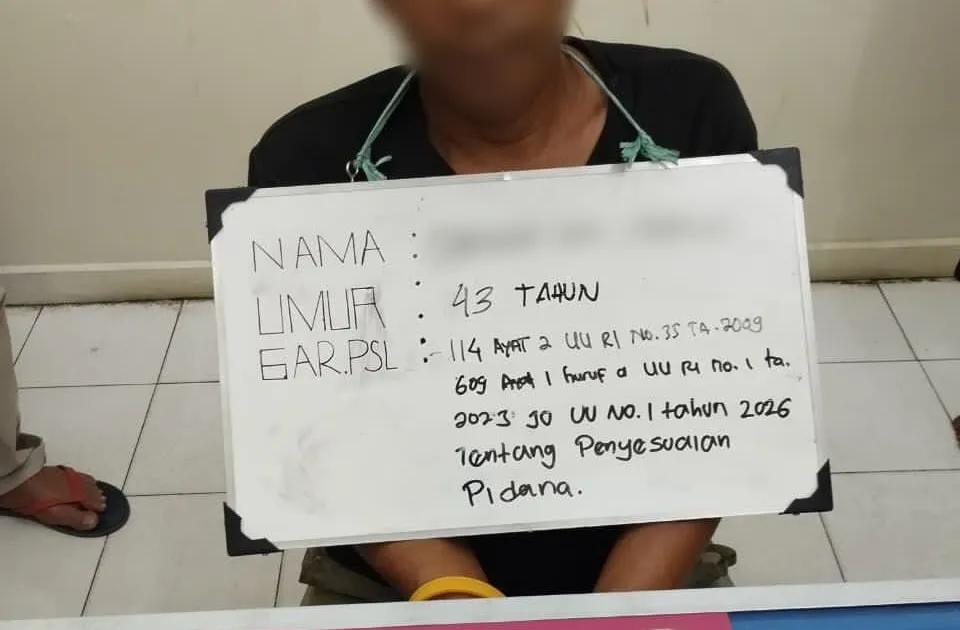 NAMA :
UMUR : 43 TAHUN
GAR.PSL : - 114 AYAT 2 UU RI NO.35 TA.2009
609 Ayat 1 huruf a UU RI no.1 ta.
2023 JO UU NO.1 tahun 2026
Tentang Penyesuaian
Pidana.